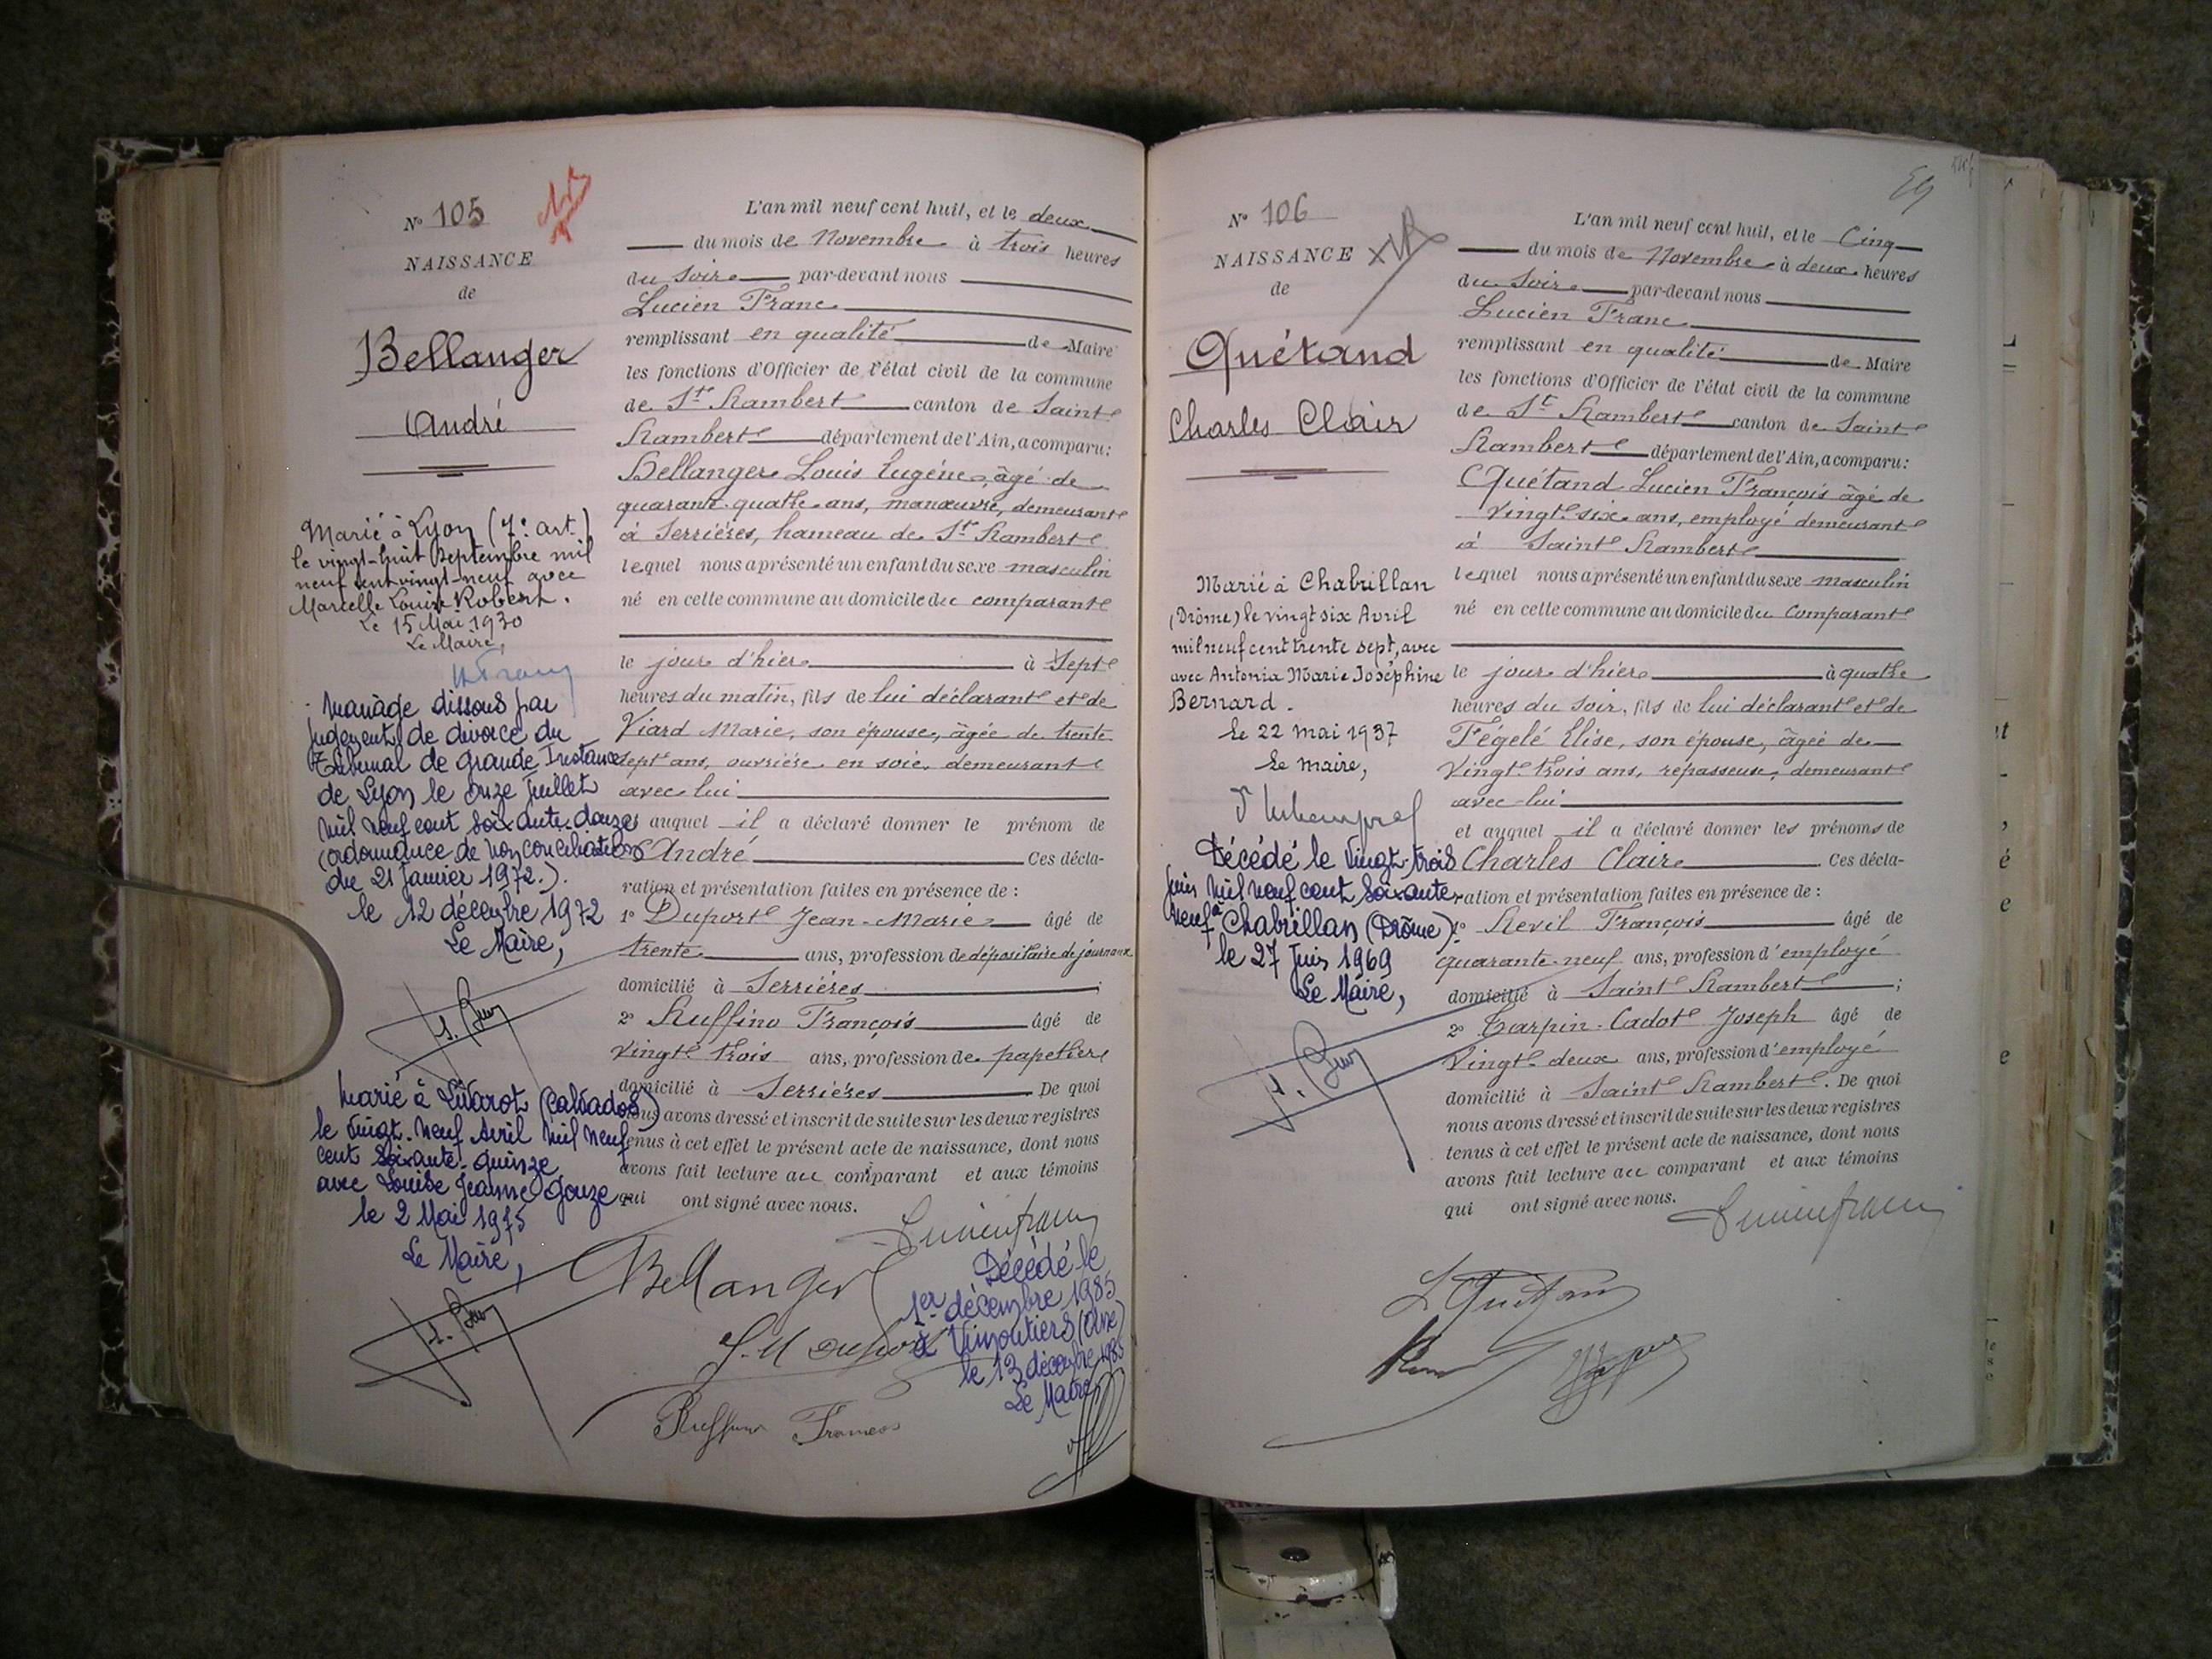 N° 105
NAISSANCE
de
Bellanger
André
Marié à Lyon (7e art.)
le vingt-huit Septembre mil
neuf cent vingt-neuf avec
Marcelle Louise Robert.
Le 15 Mai 1930
Le Maire,
Mariage dissous par
jugement de divorce du
Tribunal de Grande Instance
de Lyon le onze Juillet
mil neuf cent soixante-douze
(ordonnance de non conciliation
du 21 Janvier 1972.).
le 12 décembre 1972
Le Maire,
Marié à Livarot (Calvados)
le vingt-neuf Avril mil neuf
cent soixante-quinze
avec Louise Jeanne Gouze
le 2 Mai 1975
Le Maire,
L'an mil neuf cent huit, et le deux
du mois de Novembre à trois heures
du soir par-devant nous
Lucien Franc
remplissant en qualité de Maire
les fonctions d'Officier de l'état civil de la commune
de St Rambert canton de Saint
Rambert département de l'Ain, a comparu:
Bellanger Louis Eugène, âgé de
quarante-quatre ans, manœuvre, demeurant
à Serrières, hameau de St Rambert
lequel nous a présenté un enfant du sexe masculin
né en cette commune au domicile du comparant
le jour d'hier à sept
heures du matin, fils de lui déclarant et de
Viard Marie, son épouse, âgée de trente
sept ans, ouvrière en soie, demeurant
avec lui
auquel il a déclaré donner le prénom de
André Ces décla-
ration et présentation faites en présence de :
1° Duport Jean-Marie âgé de
trente ans, profession de dépositaire de journaux
domicilié à Serrières ;
2° Ruffino François âgé de
vingt trois ans, profession de papetier
domicilié à Serrières De quoi
nous avons dressé et inscrit de suite sur les deux registres
tenus à cet effet le présent acte de naissance, dont nous
avons fait lecture au comparant et aux témoins
qui ont signé avec nous.
Lucien Franc
Bellanger
J. M Duport
Ruffino Francois
Décédé le
1er décembre 1985
à Vimoutiers (Orne)
le 13 décembre 1985
Le Maire
N° 106
NAISSANCE
de
Quétand
Charles Clair
Marié à Chabrillan
(Drôme) le vingt six Avril
mil neuf cent trente sept, avec
avec Antonia Marie Joséphine
Bernard.
Le 22 mai 1937
Le maire,
Décédé le vingt-trois
Juin mil neuf cent soixante
neuf à Chabrillan (Drôme).
le 27 Juin 1969
Le Maire,
L'an mil neuf cent huit, et le Cinq
du mois de Novembre à deux heures
du soir par-devant nous
Lucien Franc
remplissant en qualité de Maire
les fonctions d'Officier de l'état civil de la commune
de St Rambert canton de Saint
Rambert département de l'Ain, a comparu:
Quétand Lucien François âgé de
vingt-six ans, employé demeurant
à Saint Rambert
lequel nous a présenté un enfant du sexe masculin
né en cette commune au domicile du comparant
le jour d'hier à quatre
heures du soir, fils de lui déclarant et de
Fégelé Elise, son épouse, âgée de
vingt-trois ans, repasseuse, demeurant
avec lui
et auquel il a déclaré donner les prénoms de
Charles Clair Ces décla-
ration et présentation faites en présence de :
1° Revil François âgé de
quarante-neuf ans, profession d'employé
domicilié à Saint Rambert ;
2° Tarpin-Cadot Joseph âgé de
vingt-deux ans, profession d'employé
domicilié à Saint Rambert. De quoi
nous avons dressé et inscrit de suite sur les deux registres
tenus à cet effet le présent acte de naissance, dont nous
avons fait lecture au comparant et aux témoins
qui ont signé avec nous.
Lucien Franc
L Quétand